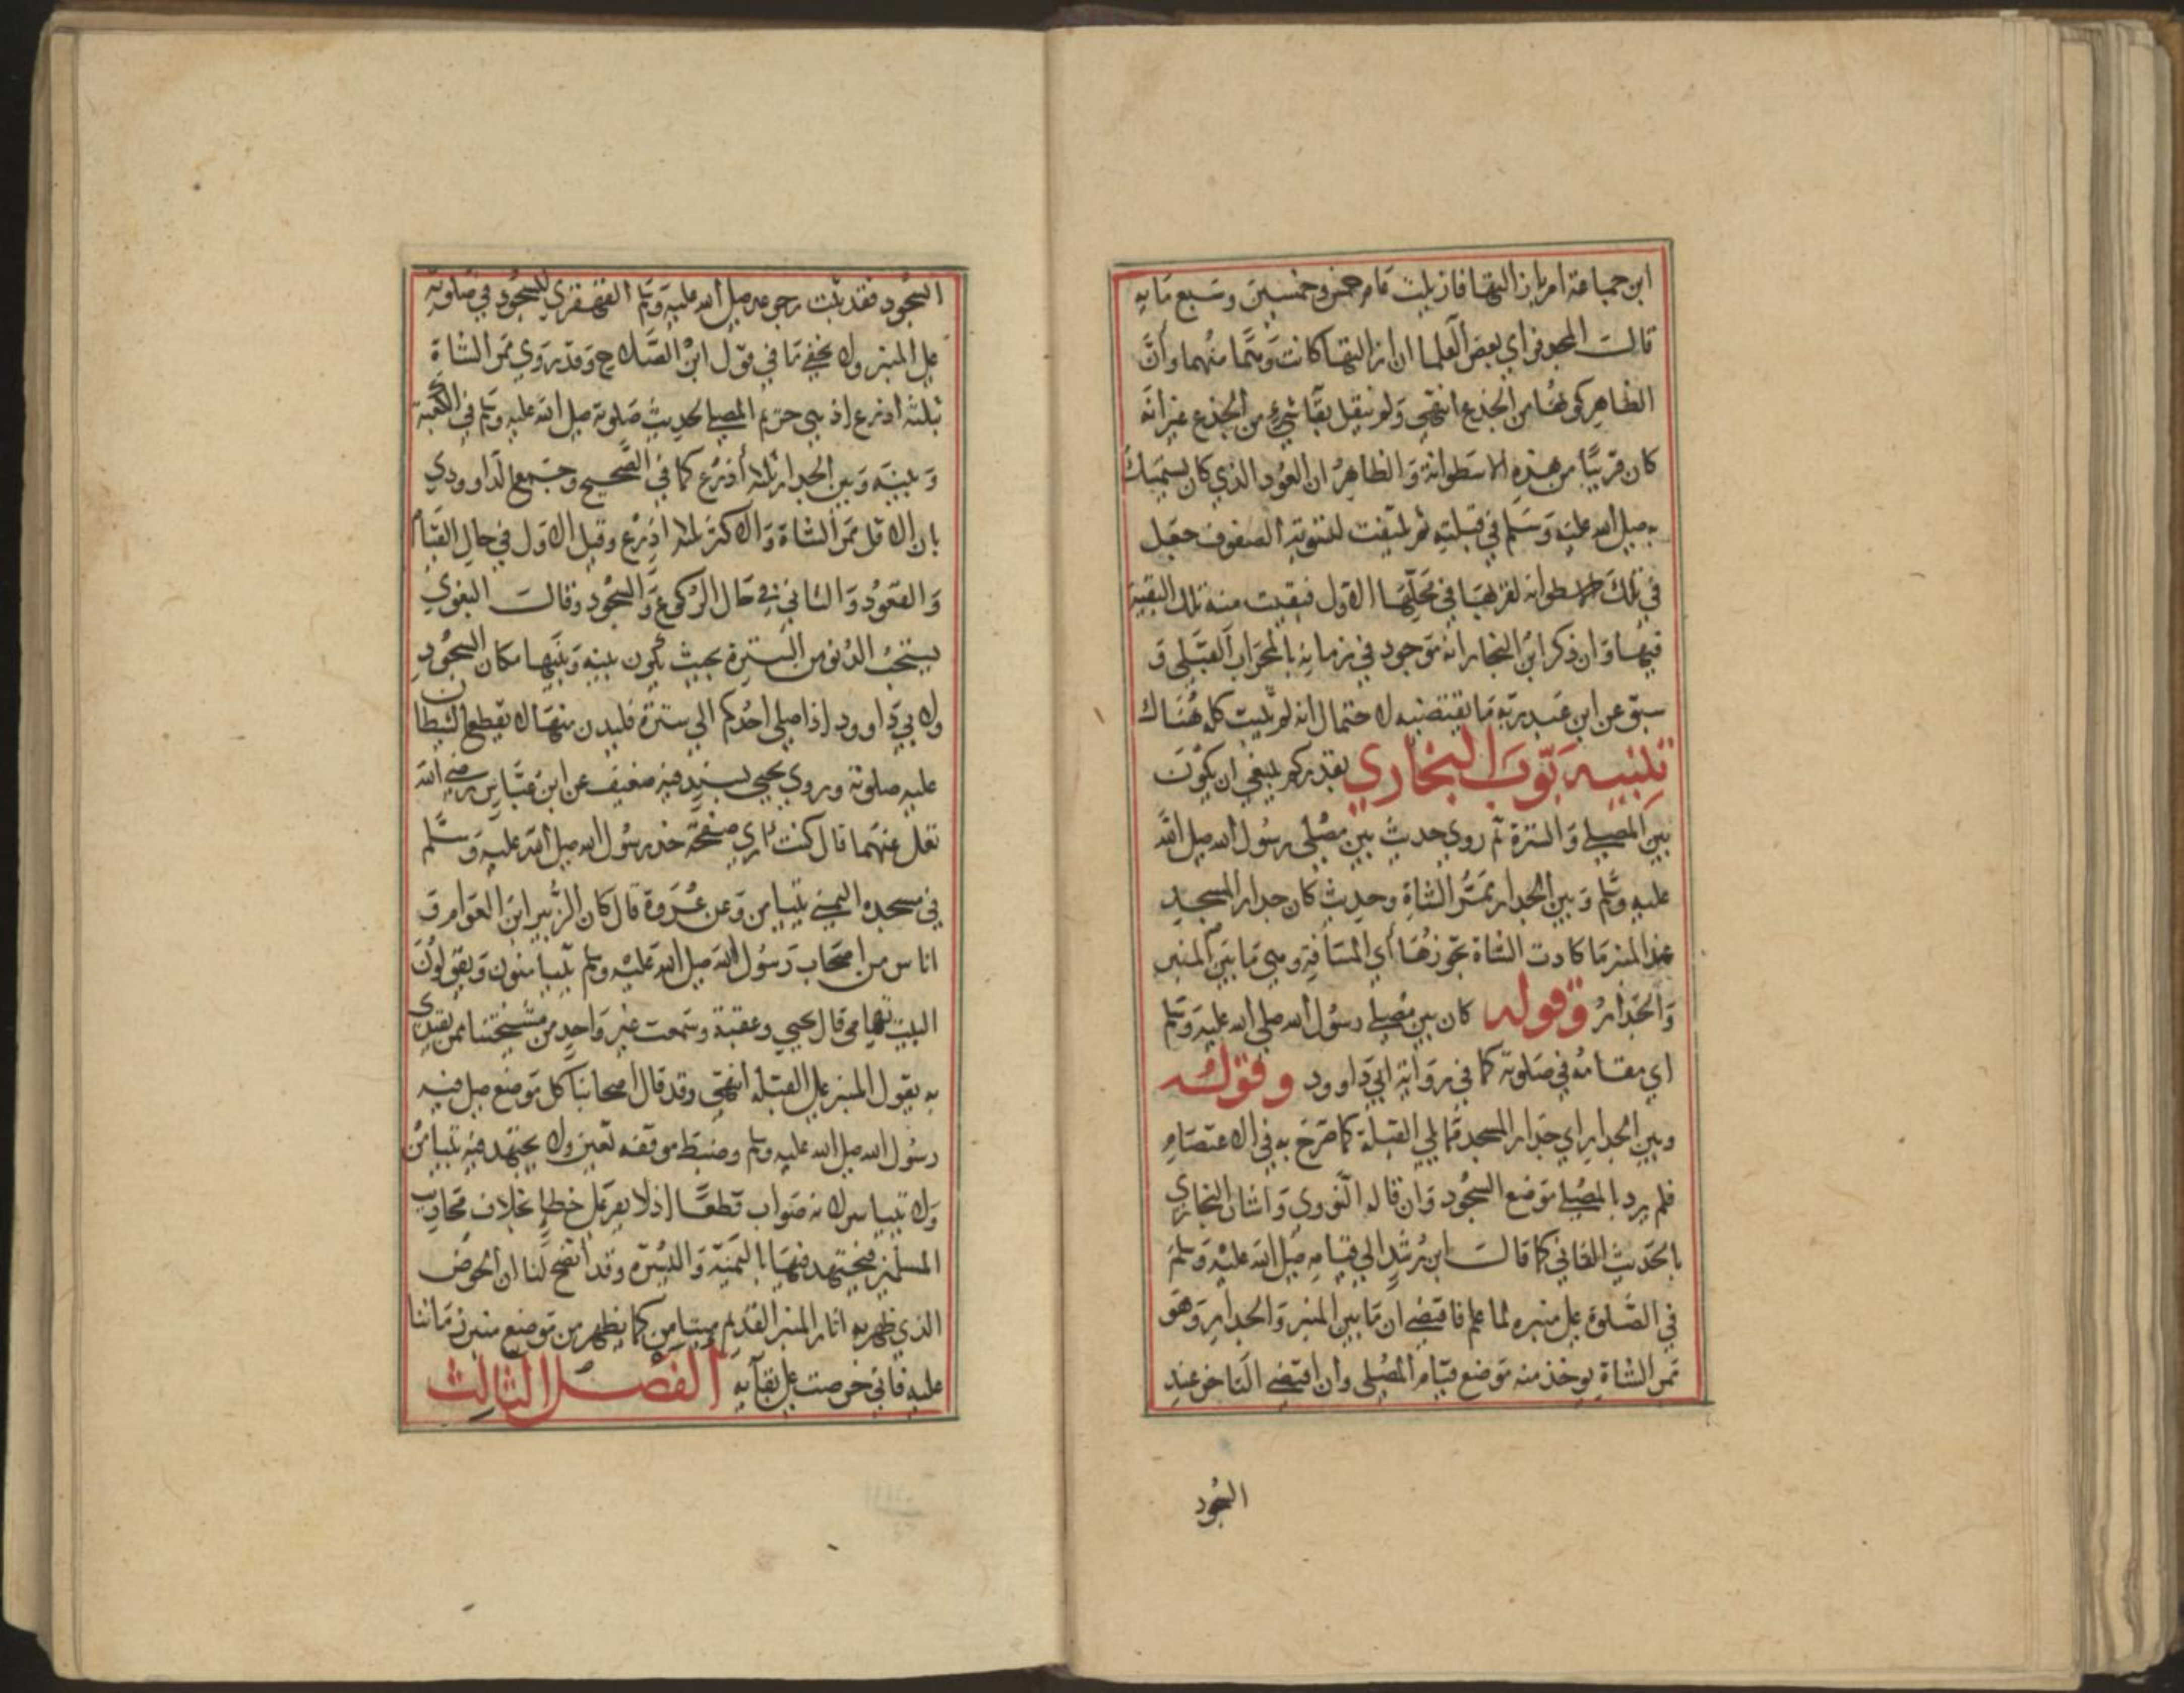 ابن جماعة امر بازالتها فازيلت عام خمس وخمسين وسبع مايه
قالت المجد فراي بعض العلما ان ازالتها كانت وهما منهما وان
الظاهر كونها من الجذع انتهي ولم ينقل بقا شيء من الجذع غير انه
كان قريبا من هذه الاسطوانة والظاهر ان العود الذي كان يستمسك
به صلي الله عليه وسلم في قبلته ثم يلتفت لتسوية الصفوف جعل
في تلك الاسطوانه لقربها في محلها الاول فبقيت منه تلك البقية
فيها وان ذكر ابن النجار انه موجود في زمانه بالمحراب القبلي و
سبق عن ابن عبد ربه ما يقتضيه لاحتمال انه لم يثبت كله هناك
تنبيه بوب البخاري بقدركم ينبغي ان يكون
بين المصلي والسترة ثم روي حديث بين مصلي رسول الله صلي الله
عليه وسلم وبين الجدار ممر الشاة وحديث كان جدار المسجد
عند المنبر ما كادت الشاة تجوزها أي المسافة وهي ما بين المنبر
والجدار وقوله كان بين مصلي رسول الله صلي الله عليه وسلم
اي مقامه في صلوته كما في رواية ابي داوود وقوله
وبين الجدار اي جدار المسجد مما يلي القبلة كما صرح به في الاعتصام
فلم يرد بالمصلي موضع السجود وان قاله النووي واشار البخاري
بالحديث الثاني كما قالت ابن رشد الي قيامه صلي الله عليه وسلم
في الصلوة علي منبره لما علم فاقتضي ان ما بين المنبر والجدار وهو
ممر الشاة يوخذ منه موضع قيام المصلي وان اقتضي التاخر عند
السجود
السجود فقد ثبت رجوعه صلي الله عليه وسلم القهقري للسجود في صلوته
علي المنبر ولا يخفي ما في قول ابن الصلاح وقد روي ممر الشاة
بثلثه اذرع اذ هي حريم المصلي لحديث صلوته صلي الله عليه وسلم في الكعبة
وبينه وبين الجدار ثلثة أذرع كما في الصحيح وجمع الداوودي
بان الاقل ممر الشاة والاكثر ثلثة اذرع وقيل الاول في حال القيام
والقعود والثاني في حال الركوع والسجود وقالت البغوي
يستحب الدنو من السترة بحيث يكون بينه وبينها مكان السجود
ولابي داوود اذا صلي احدكم الي سترة فليدن منها لا يقطع الشيطان
عليه صلوته وروي يحيي بسند فيه ضعيف عن ابن عباس رضي الله
تعلي عنهما قال كنت اري صفحة خد رسول الله صلي الله عليه وسلم
في مسجده اليمني تيامن وعن عروة قال كان الزبير ابن العوام و
اناس من اصحاب رسول الله صلي الله عليه وسلم يتيامنون ويقولون
البيت تهامي قال يحيي وعقبة وسمعت غير واحد من مشيختنا ممن يقتدي
به يقول المنبر علي القبلة انتهي وقد قال اصحابنا كل موضع صلي فيه
رسول الله صلي الله عليه وسلم وضبط موقفه تعين ولا يجتهد فيه تيامن
ولا تياسر لانه صواب قطعا اذ لا يقر علي خطإ بخلاف محاريب
المسلمين فيجتهد فيها باليمنة واليسرة وقد اتضح لنا ان الحوض
الذي ظهر به اثار المنبر القديم متيامن كما يظهر من موضع منبر زماننا
عليه فاني حرصت علي بقآيه الفصل الثالث